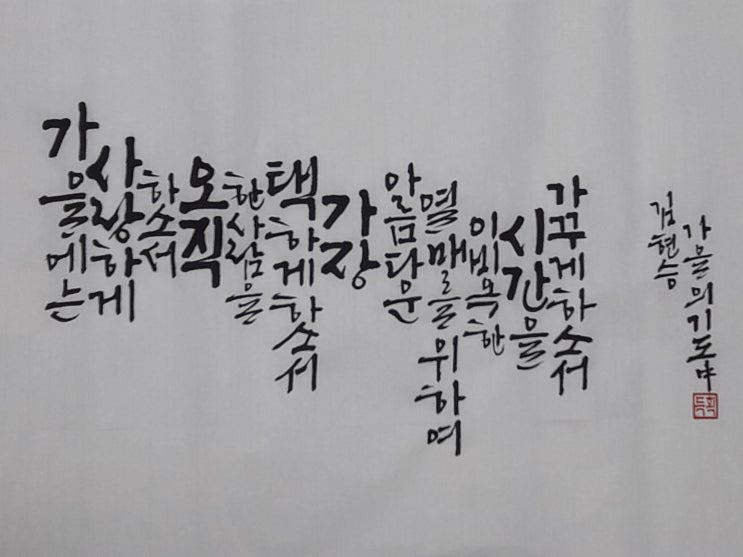 가을에는
사랑하게
하소서
오직
한사람을
택하게하소서
가장
아름다운
열매를위하여
이비옥한
시간을
가꾸게하소서
김현승
가을의기도中